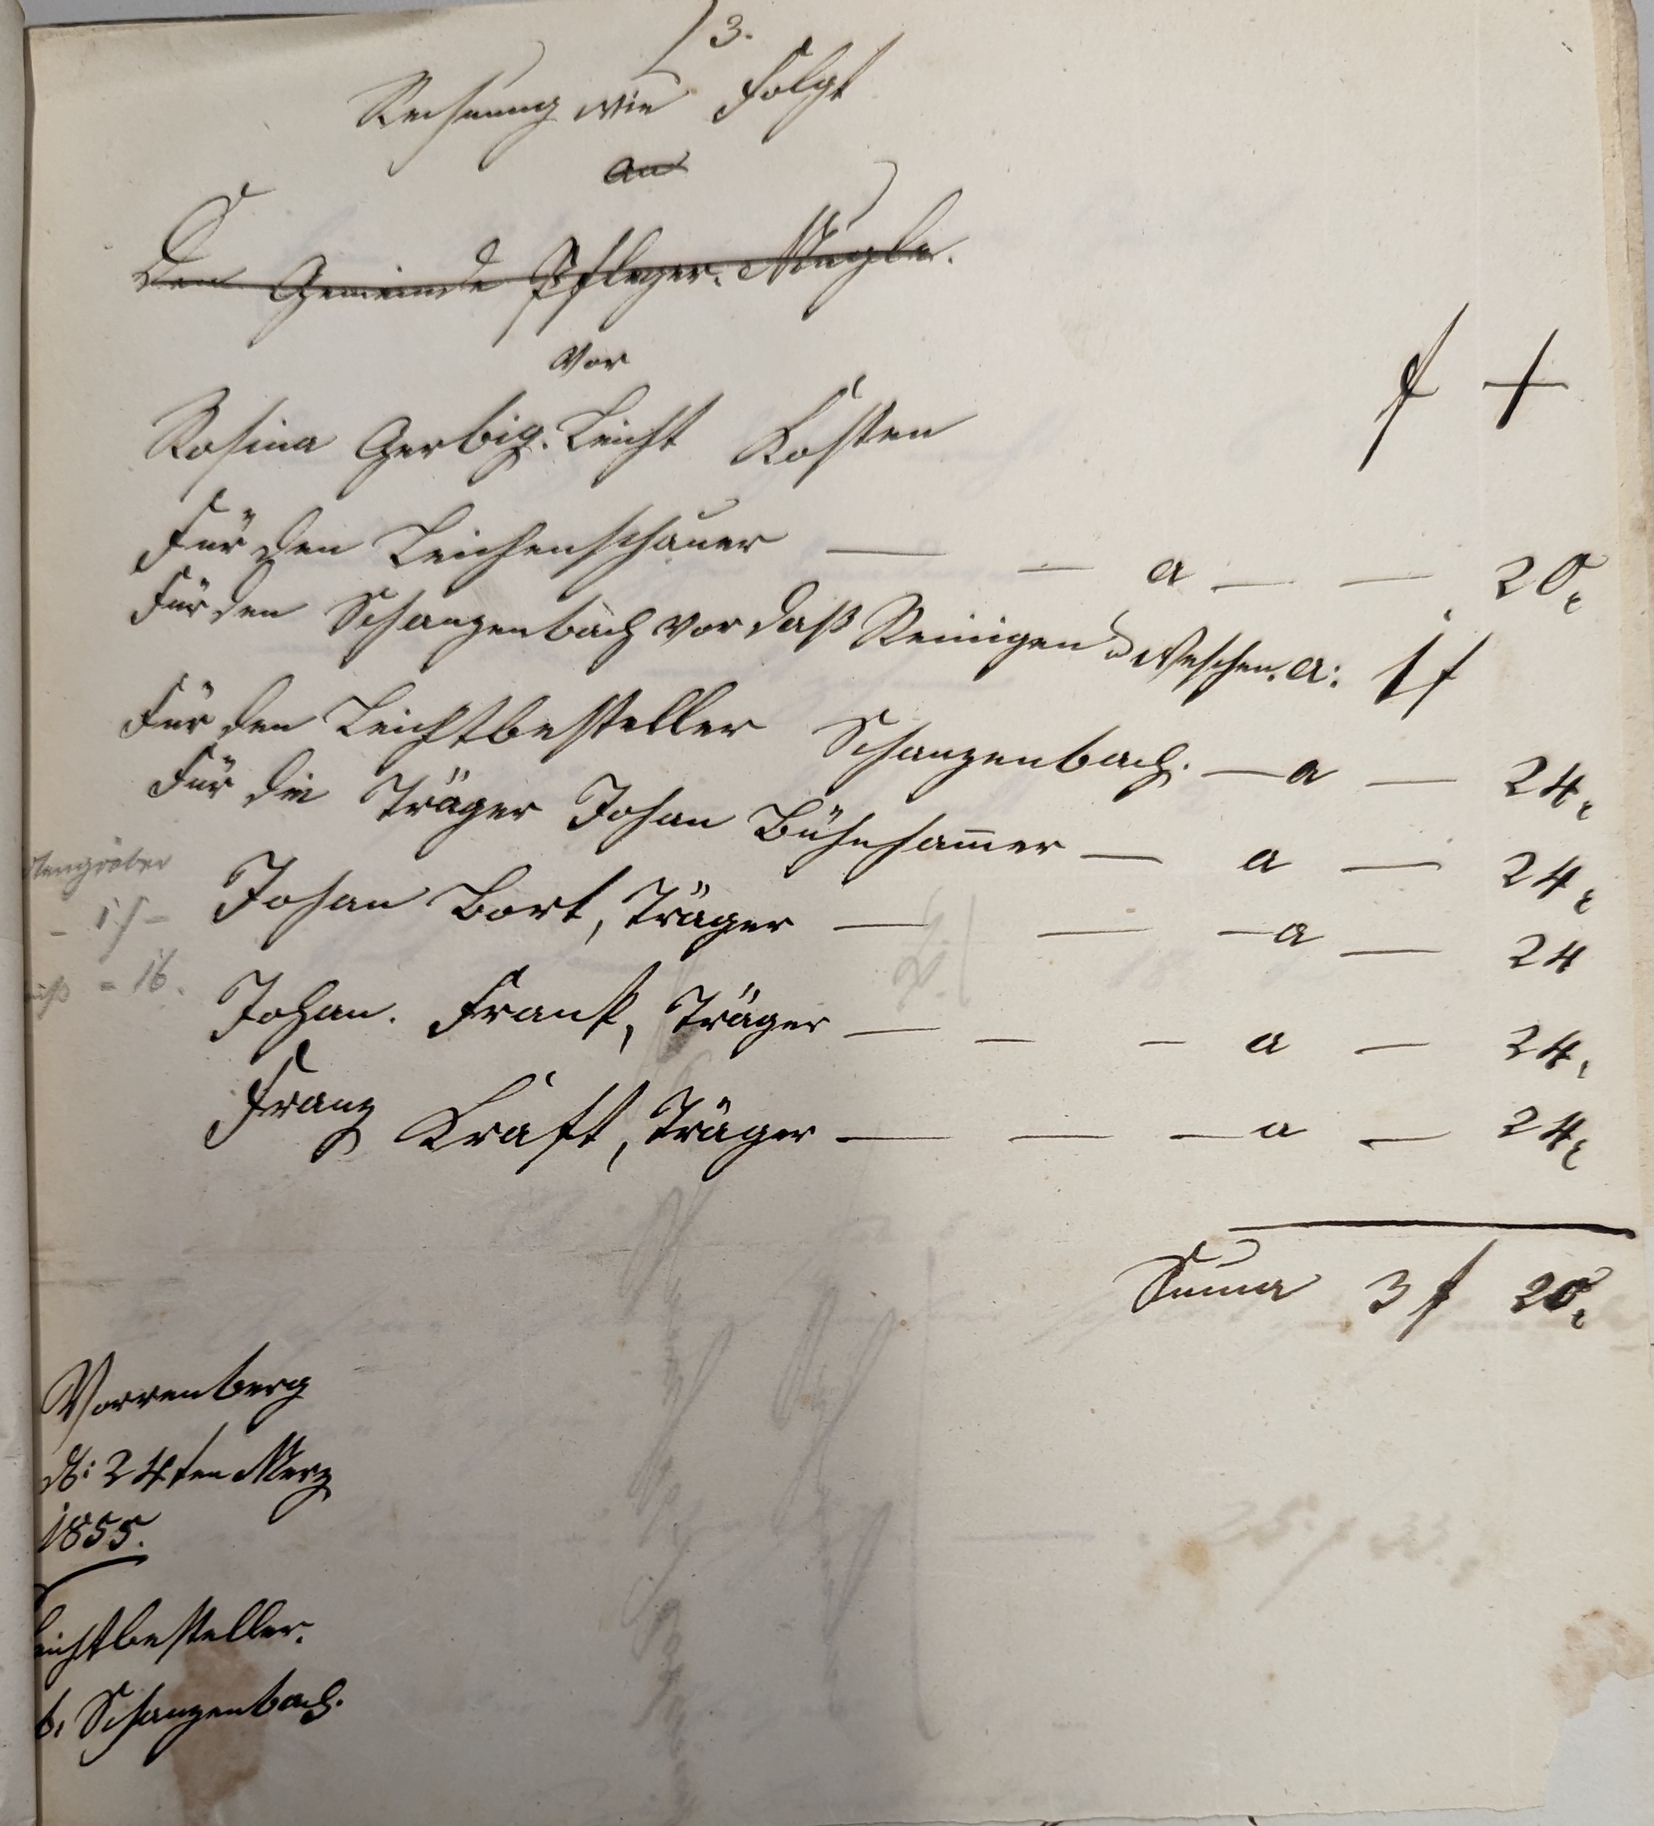 3.
Rechnung wie Folgt
an
Den Gemeinde Pfleger. Mugler.
Vor
Rosina Gerbig. Leicht Kosten
f x
Für den Leichenschauer — — a — — 20x
Für den Schanzenbach vor daß Reinigen u. Weschen. a: 1 f
Für den Leichtbesteller Schanzenbach. — a — 24x
Für die Träger Johan Bühnham̅er — a — 24x
Johan Bort, Träger — — — a — 24
Johan. Frank, Träger — — — a — 24.
Franz Kraft, Träger — — — a — 24x
Suma 3 f 20x
Vorrenberg
d: 24ten Merz
1855.
eichtbesteller.
b. Schanzenbach.